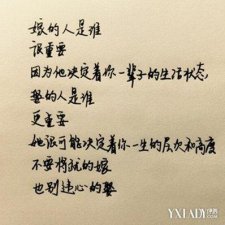 嫁的人是谁
很重要
因为他决定着你一辈子的生活状态,
娶的人是谁
更重要
她很可能决定着你一生的层次和高度
不要将就的嫁
也别违心的娶
YXLADY伊秀
.com